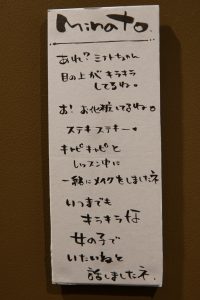 Minato.
あれ?ミナトちゃん
目の上がキラキラ
してるね。
お!お化粧してるね。
ステキステキー。
キャピキャピと
レッスン中に
一緒にメイクをしましたネ
いつまでも
キラキラな
女の子で
いたいねと
話しましたネ.